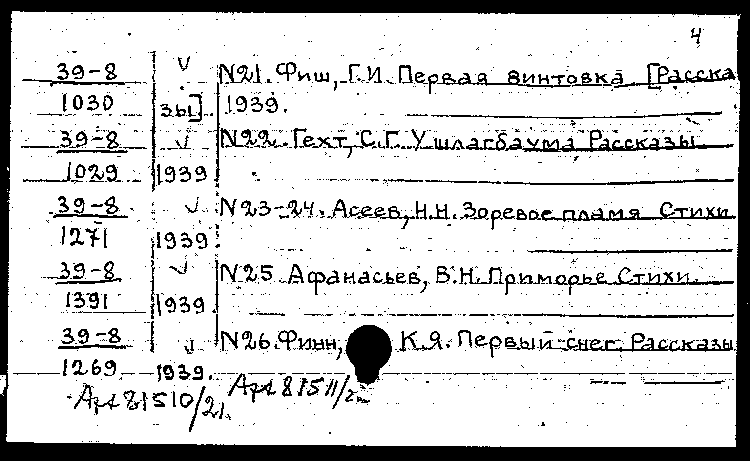 4
39-8 V N21. Фиш, Г.И. Первая винтовка [Расска
1030 зы]. 1939.
39-8 V N22. Гехт, С.Г. У шлагбаума Рассказы.
1029 1939
39-8 V N23-24. Асеев, Н.Н. Зоревое пламя Стихи
1271 1939.
39-8 V N25 Афанасьев, В.Н. Приморье Стихи.
1391 1939.
39-8 V N26. Финн, К.Я. Первый снег. Рассказы
1269 1939.
81510/21. 81511/